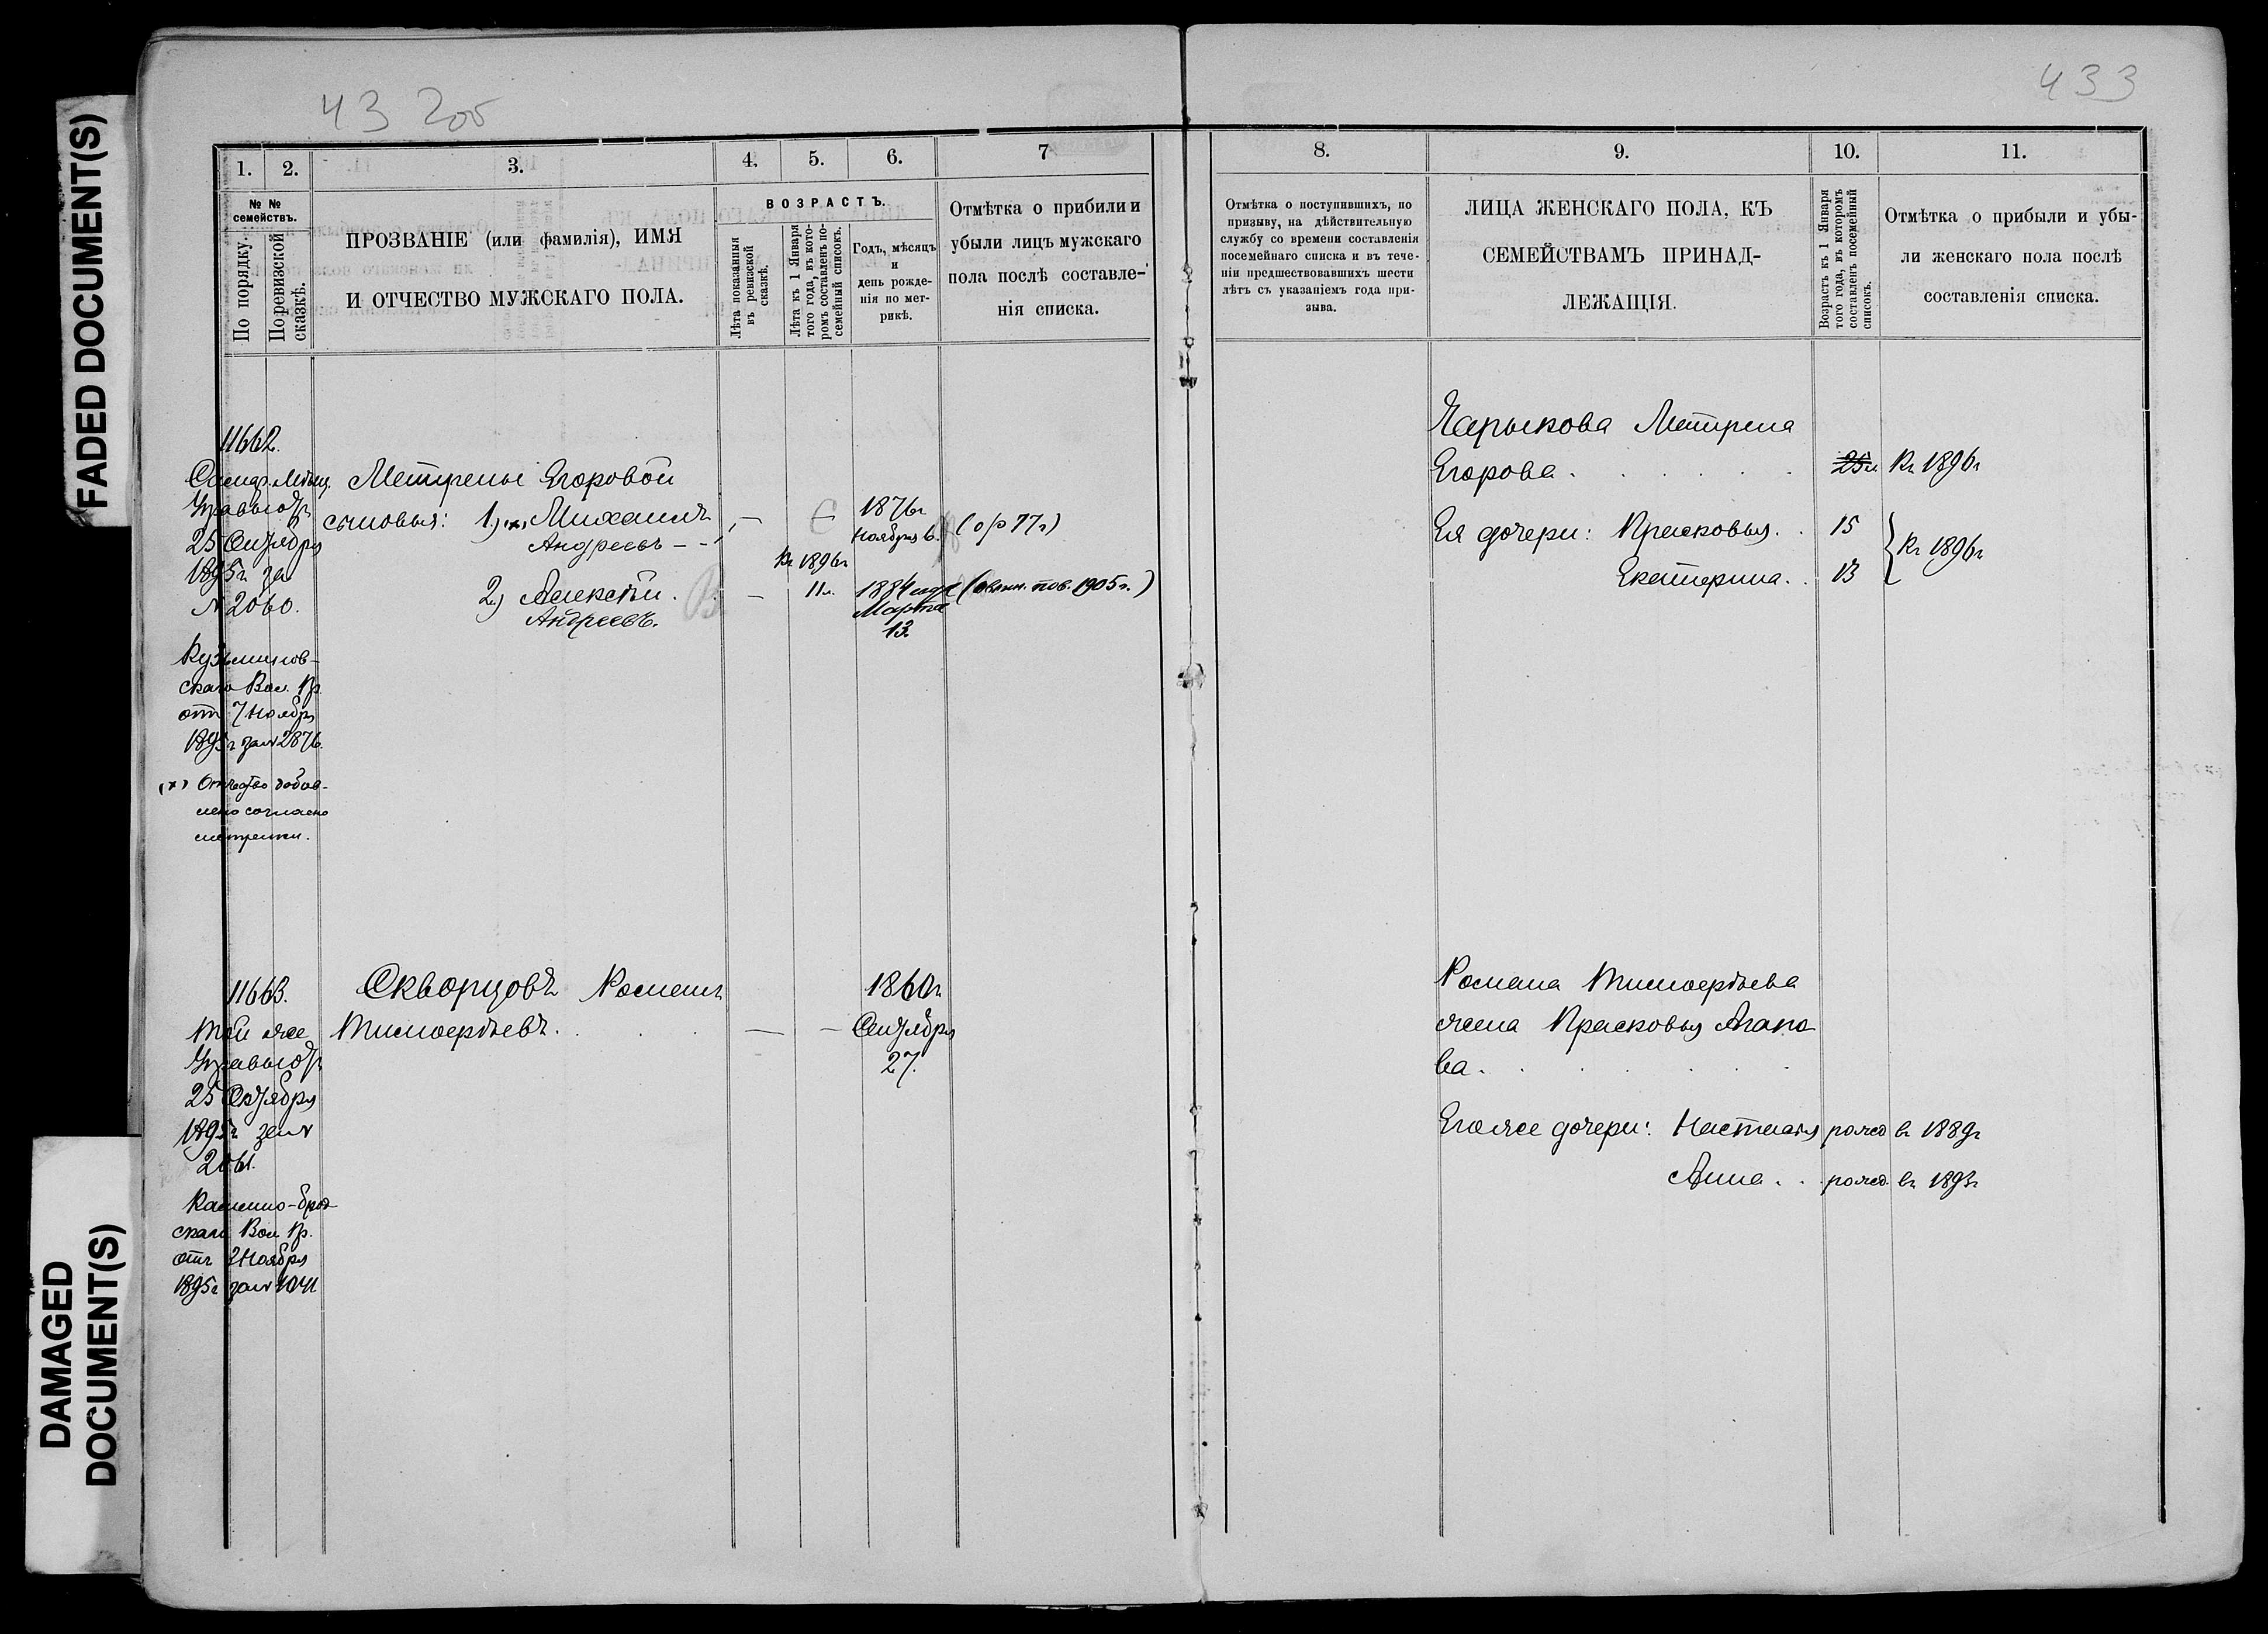 FADED DOCUMENT(S)
DAMAGED
DOCUMENT(S)
43 200
433
1.
2.
3.
4.
5.
6.
7
№ №
семействъ.
По порядку.
По ревизской
сказкѣ.
ПРОЗВАНІЕ (или фамилія), ИМЯ
И ОТЧЕСТВО МУЖСКАГО ПОЛА.
ВОЗРАСТЪ.
Лѣта показанныя
въ ревизской
сказкѣ.
Лѣта къ 1 Января
того года, въ кото-
ромъ составленъ по-
семейный списокъ.
Годъ, мѣсяцъ
и
день рожде-
нія по мет-
рикѣ.
Отмѣтка о прибыли и
убыли лицъ мужскаго
пола послѣ составле-
нія списка.
11662.
Управы от
25 Сентября
1895г. за
№ 2060.
Кузьминов-
скаго Вол. Пр.
отъ 7 Ноября
1895г за № 2876.
(х) Отчество добав-
лено согласно
метрики.
Матрены Егоровой
сыновья: 1) (х) Михаилъ
Андреевъ
—
1876г
Ноября 6.
(о/р 77г)
Къ 1896г
2) Алексѣй
Андреевъ.
—
11л.
1884 года
Марта
13.
1905г.)
11663.
Той же
Управы от
25 Сентября
1895г за №
2061.
Камышно-брод-
скаго Вол. Пр.
отъ 2 Ноября
1895г за №
Скворцовъ Романъ
Тимоѳѣевъ.
—
—
1860г
Сентября
27.
8.
9.
10.
11.
Отмѣтка о поступившихъ, по
призыву, на дѣйствительную
службу со времени составленія
посемейнаго списка и въ тече-
ніи предшествовавшихъ шести
лѣтъ съ указаніемъ года при-
зыва.
ЛИЦА ЖЕНСКАГО ПОЛА, КЪ
СЕМЕЙСТВАМЪ ПРИНАД-
ЛЕЖАЩІЯ.
Возрастъ къ 1 Января
того года, въ которомъ
составленъ посемейный
списокъ.
Отмѣтка о прибыли и убы-
ли женскаго пола послѣ
составленія списка.
Чарыкова Матрена
Егорова.
25л
Къ 1896г
Ея дочери: Прасковья.
15
Екатерина.
13
Къ 1896г
Романа Тимоѳѣева
жена Прасковья Агапо
ва.
Его же дочери: Настасья рожд въ 1889г
Анна. рожд. въ 1893г